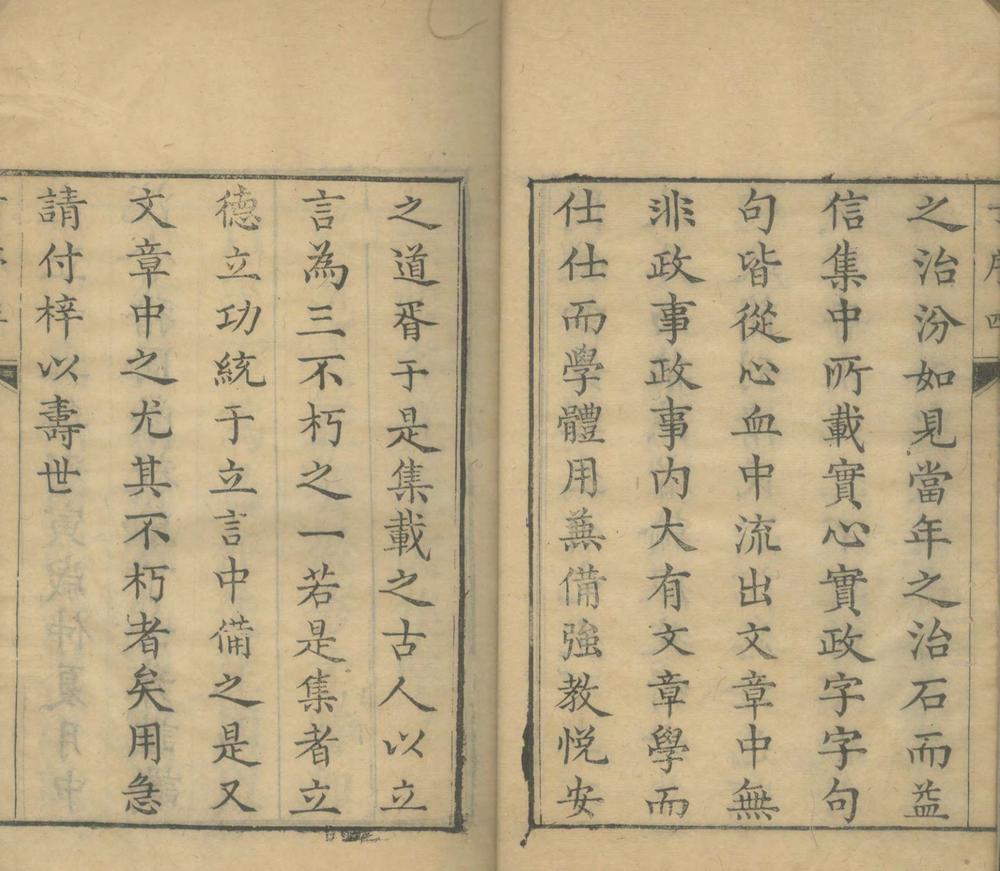 之治汾如見當年之治石而益
信集中所載實心實政字字句
句皆從心血中流出文章中無
非政事政事内大有文章學而
仕仕而學體用蕪備強教悅安
之道胥于是集載之古人以立
言為三不朽之一若是集者立
德立功統于立言中備之是又
文章中之尤其不朽者矣用急
請付梓以壽世